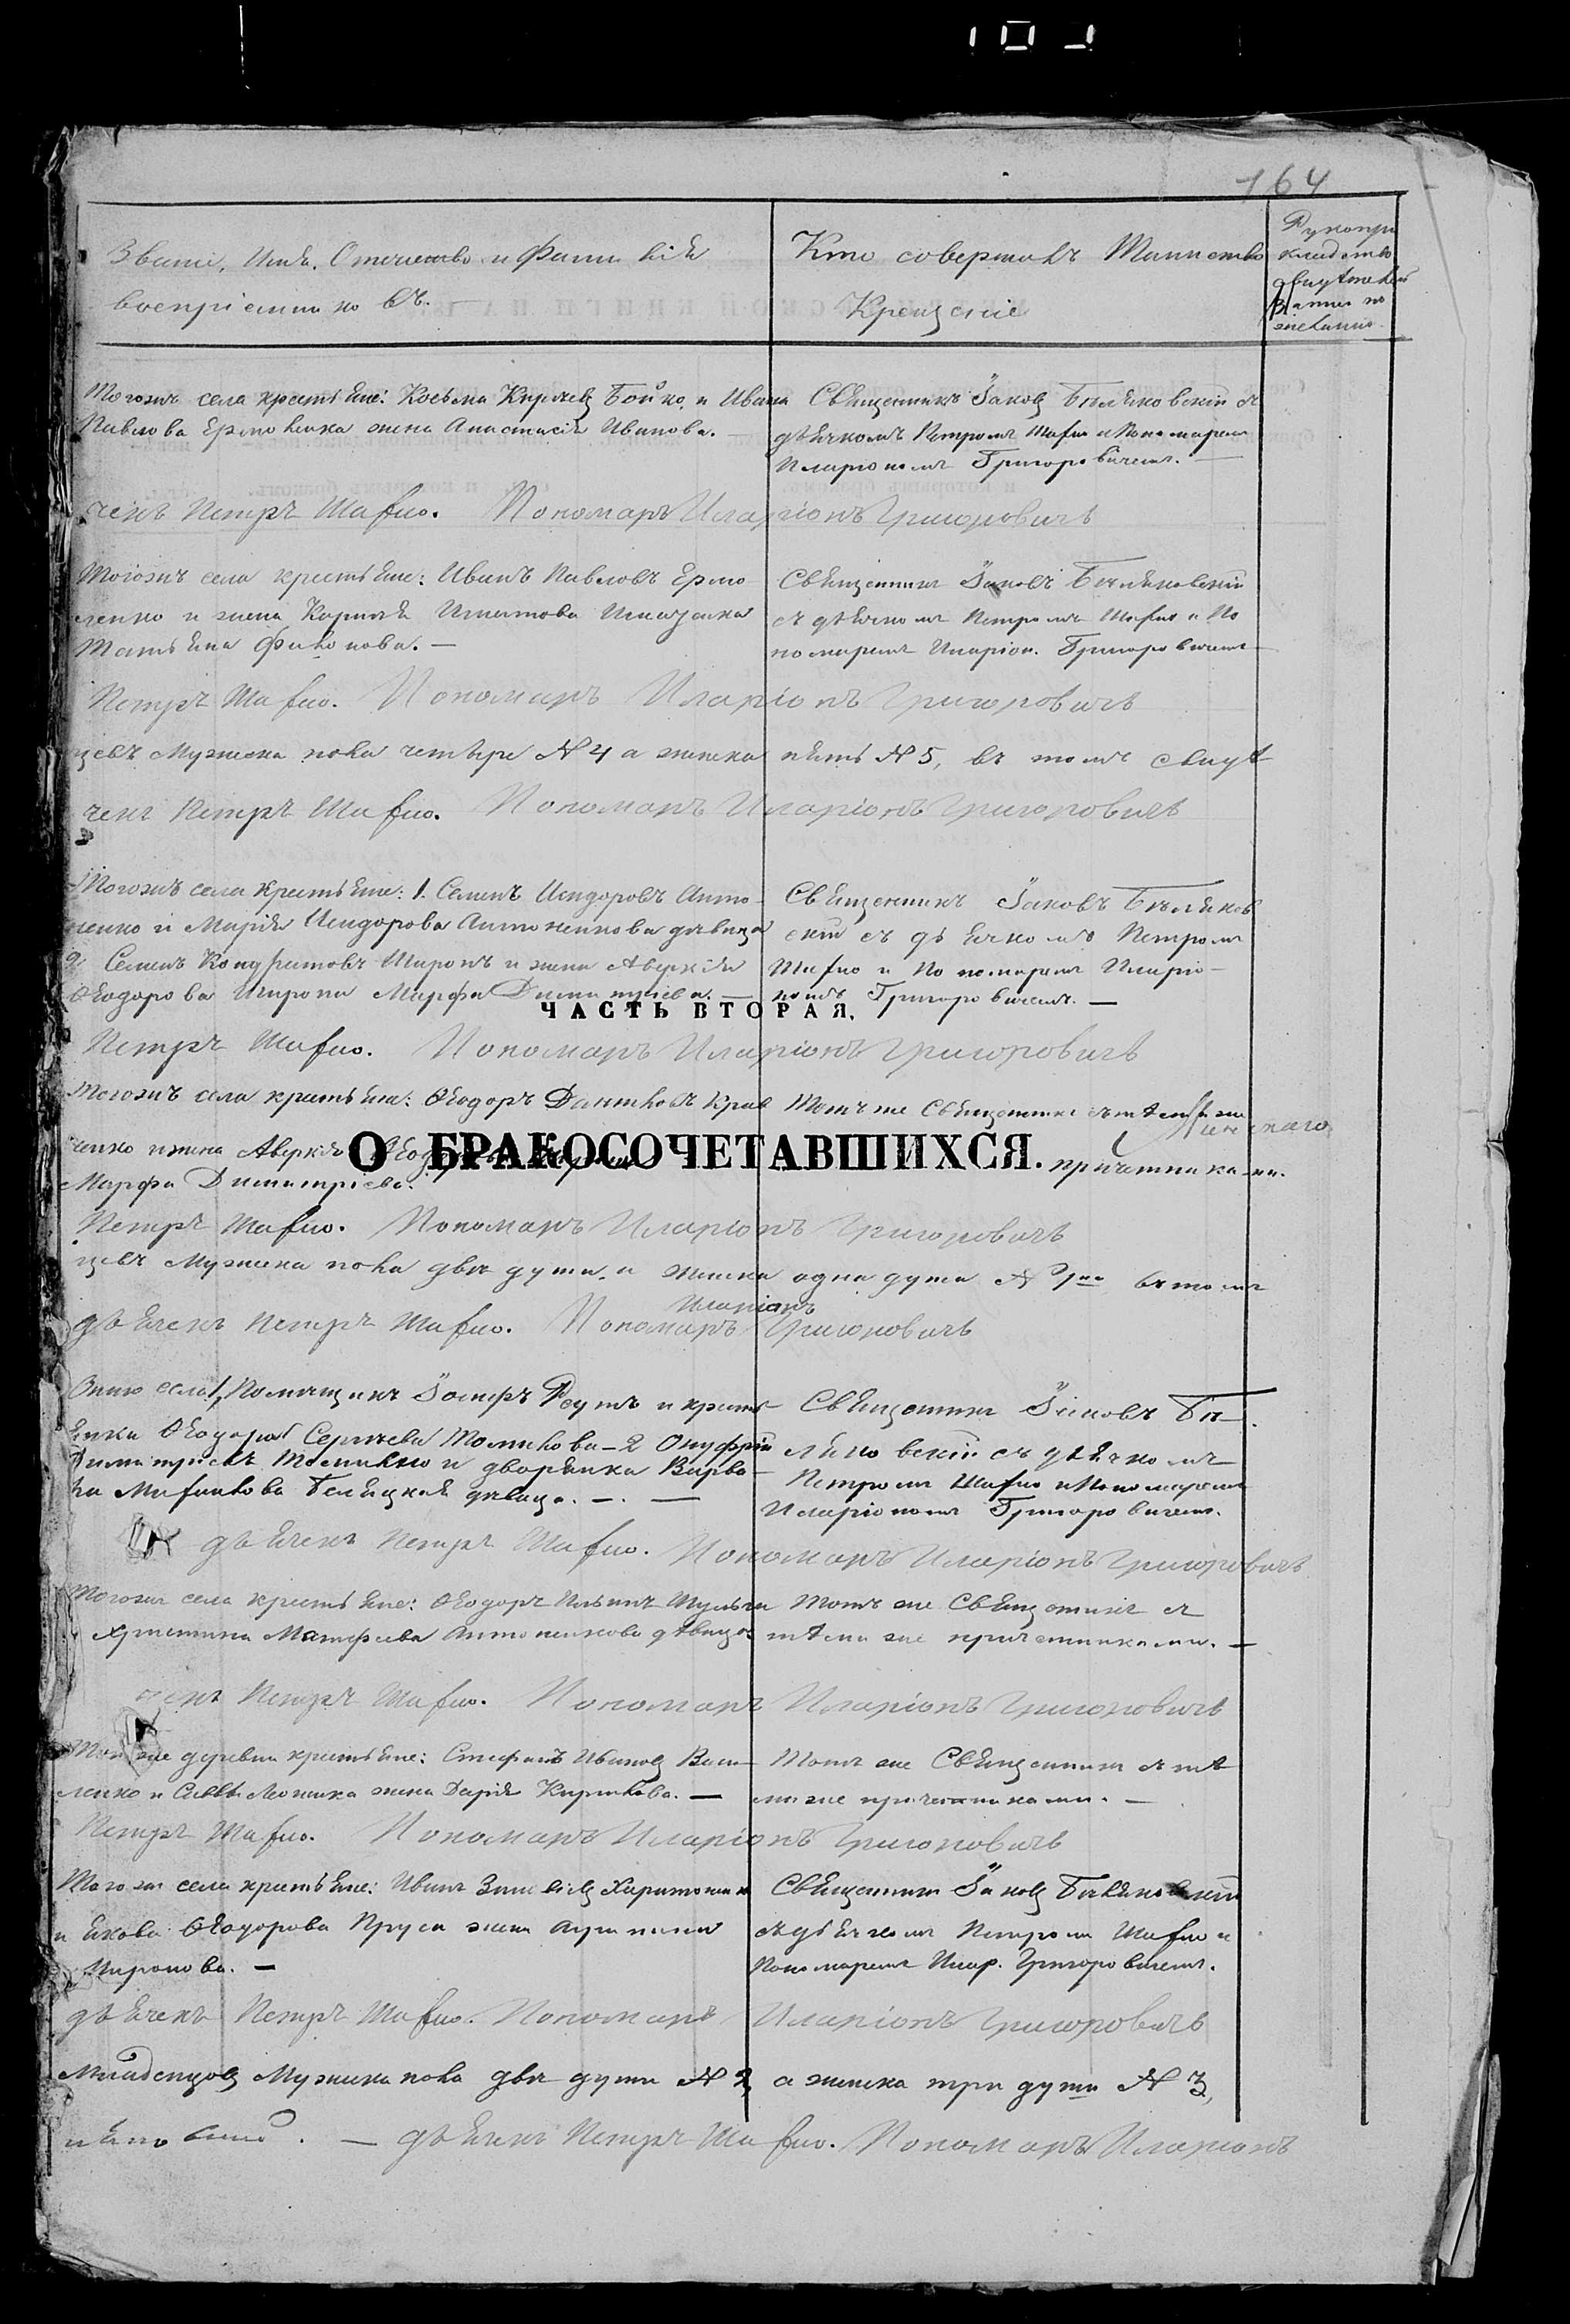 164
Званіе, Имя, Отечество и Фамилія
воспріемниковъ.
Кто совершалъ Таинство
Крещеніе
Рукопри
кладство
свидѣтелей
записи по
желанію
Тогожъ села крестьяне: Косьма Кирилевъ Бойко, и Ивана
Павлова Ермоленка жена Анастасія Иванова. —
Священникъ Іаковъ Бѣляковскій съ
дьячкомъ Петромъ Шафио и Пономаремъ
Иларіономъ Григоровичемъ. —
чекъ Петръ Шафио. Пономаръ Иларіонъ Григоровичъ
Тогожъ села крестьяне: Иванъ Павловъ Ермо
ленко и жена
Татьяна
Священникъ Іаковъ Бѣляковскій
съ дьячкомъ Петромъ Шафио и По
номаремъ Иларіон. Григоровичемъ
Петръ Шафио. Пономаръ Иларіонъ Григоровичъ
цевъ Мужеска пола четыре № 4 а женска пять № 5, въ томъ свидѣ
чекъ Петръ Шафио. Пономаръ Иларіонъ Григоровичъ
Тогожъ села крестьяне: 1. Семенъ Исидоровъ Анто-
ненко и Марія Исидорова Антоненкова дѣвица
2 Семенъ Кондратовъ Широкъ и жена Аверкія
Ѳеодорова Марфа Димитріева. —
Священникъ Іаковъ Бѣляков
скій съ дьячкомъ Петромъ
Шафио и Пономаремъ Иларіо-
номъ Григоровичемъ. —
ЧАСТЬ ВТОРАЯ,
Петръ Шафио. Пономаръ Иларіонъ Григоровичъ
Тогожъ села крестьяне: Ѳеодоръ Даниловъ Крав
ченко и жена Аверкія
Марфа Димитріева.
Тотъ же Священникъ съ тѣми же
причетниками.
О БРАКОСОЧЕТАВШИХСЯ.
Петръ Шафио. Пономаръ Иларіонъ Григоровичъ
цевъ Мужеска пола двѣ души, и женска одна душа № 1 въ томъ
Иларіонъ
дьячекъ Петръ Шафио. Пономаръ Григоровичъ
села 1, Помѣщикъ Іосифъ Реутъ и кресть
янка Ѳеодора Сергѣева — 2 Онуфрій
Димитріевъ и дворянка Варва-
ра дѣвица. — . —
Священникъ Іаковъ Бѣ-
ляковскій съ дьячкомъ
Петромъ Шафио и Пономаремъ
Иларіономъ Григоровичемъ.
дьячекъ Петръ Шафио. Пономаръ Иларіонъ Григоровичъ
Тогожъ села крестьяне: Ѳеодоръ Ильинъ
Христина Матфѣева Антоненкова дѣвица
Тотъ же Священникъ съ
тѣми же причетниками. —
чекъ Петръ Шафио. Пономаръ Иларіонъ Григоровичъ
Той же деревни крестьяне: Стефанъ Ивановъ Васи-
ленко и Саввы жена Дарія Кирилова. —
Тотъ же Священникъ съ тѣ
ми же причетниками. —
Петръ Шафио. Пономаръ Иларіонъ Григоровичъ
Тогожъ села крестьяне: Иванъ
и Якова Ѳеодорова Пруса жена
Миронова. —
Священникъ Іаковъ Бѣляковскій
съ дьячкомъ Петромъ Шафио и
Пономаремъ Илар. Григоровичемъ.
дьячекъ Петръ Шафио. Пономаръ Иларіонъ Григоровичъ
Младенцовъ Мужеска пола двѣ души № 2, а женска три души № 3,
— дьячекъ Петръ Шафио. Пономаръ Иларіонъ